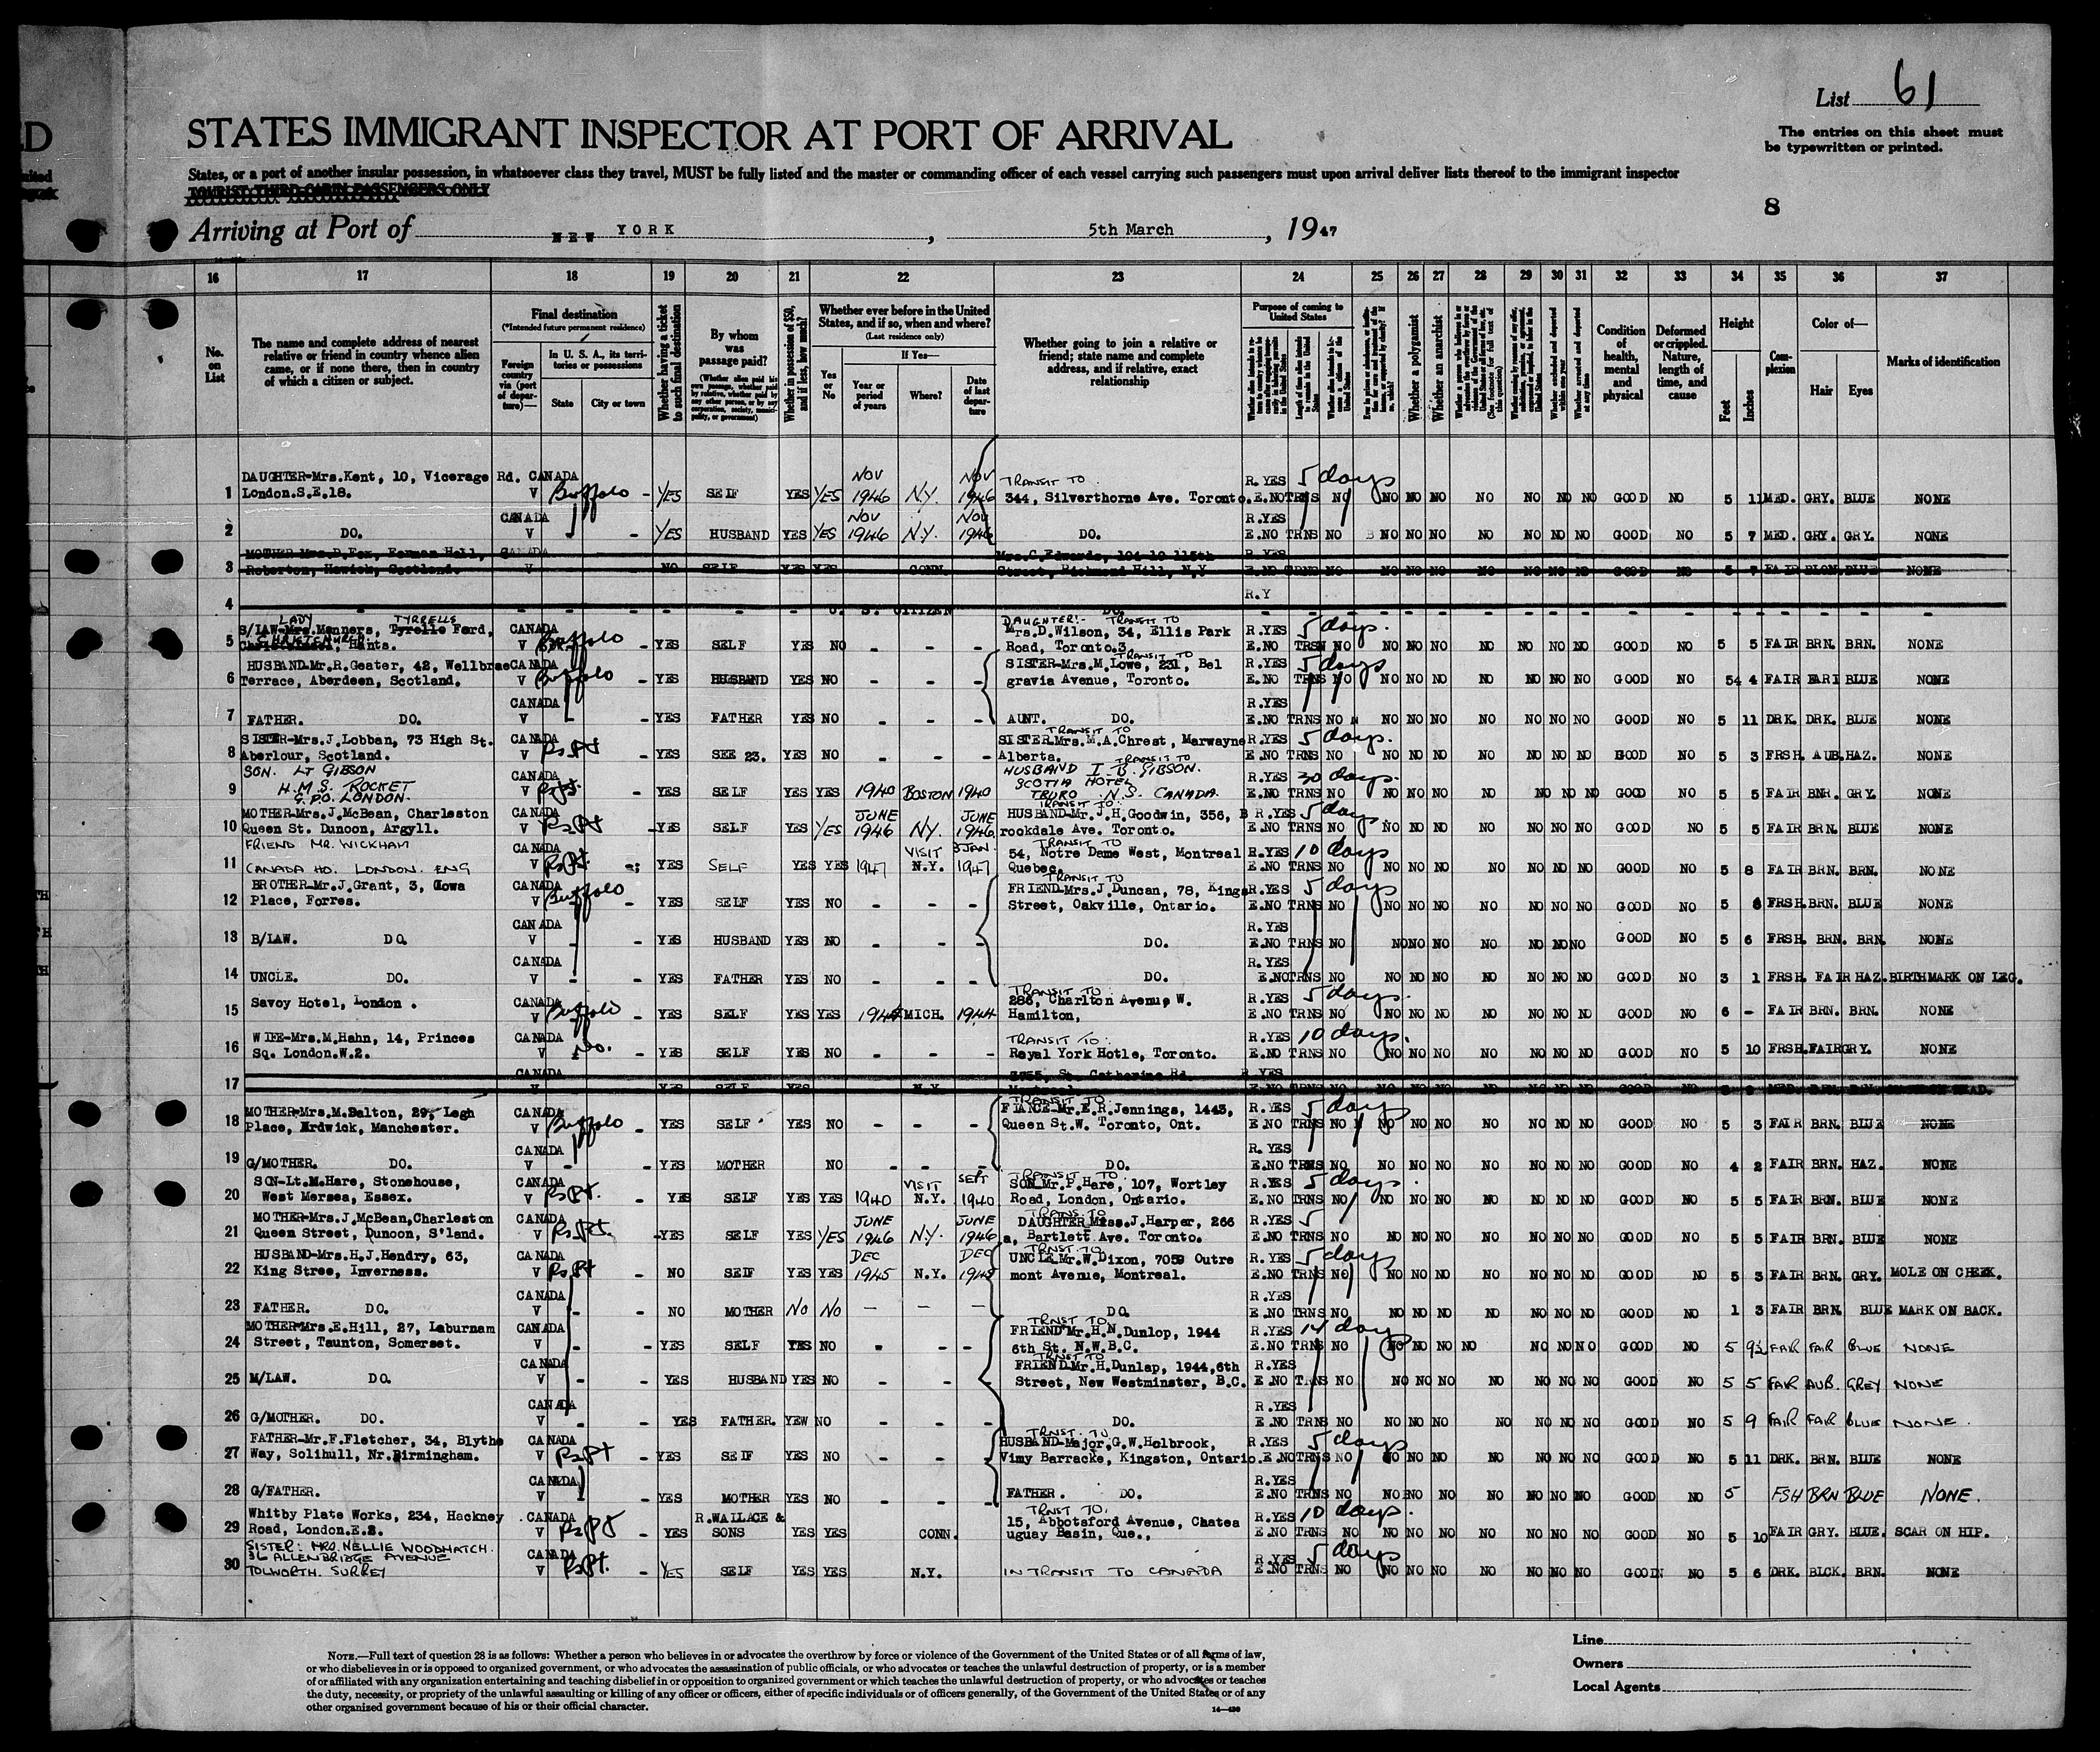 List 61
The entries on this sheet must
be typewritten or printed.
STATES IMMIGRANT INSPECTOR AT PORT OF ARRIVAL
States, or a port of another insular possession, in whatsoever class they travel, MUST be fully listed and the master or commanding officer of each vessel carrying such passengers must upon arrival deliver lists thereof to the immigrant inspector
TOURIST THIRD CABIN PASSENGERS ONLY
8
Arriving at Port of NEW YORK, 5th March, 1947
16 17 18 19 20 21 22 23 24 25 26 27 28 29 30 31 32 33 34 35 36 37
No. on List
The name and complete address of nearest
relative or friend in country whence alien
came, or if none there, then in country
of which a citizen or subject.
Final destination
(*Intended future permanent residence)
Foreign country via (port of departure)—
In U. S. A., its territories or possessions
State City or town
Whether having a ticket to such final destination
By whom was passage paid?
Whether in possession of $50, and if less, how much?
Whether ever before in the United
States, and if so, when and where?
(Last residence only)
Yes or No
If Yes—
Year or period of years
Where?
Date of last departure
Whether going to join a relative or
friend; state name and complete
address, and if relative, exact
relationship
Purpose of coming to United States
Whether a polygamist
Whether an anarchist
Condition of health, mental and physical
Deformed or crippled. Nature, length of time, and cause
Height
Feet Inches
Complexion
Color of—
Hair Eyes
Marks of identification
1 DAUGHTER-Mrs.Kent, 10, Vicerage Rd. London.S.E.18. CANADA V Buffalo - YES SELF YES YES NOV 1946 N.Y. NOV 1946 TRANSIT TO 344, Silverthorne Ave. Toronto. R.YES E.NO 5 days TRNS NO NO NO NO NO NO NO NO GOOD NO 5 11 MED. GRY. BLUE NONE
2 DO. CANADA V - YES HUSBAND YES YES NOV 1946 N.Y. NOV 1946 DO. R.YES E.NO TRNS NO NO NO NO NO NO NO NO GOOD NO 5 7 MED. GRY. GRY. NONE
3 MOTHER-Mrs.D.Fox, Forman Hall, Roberton, Hawick, Scotland. CANADA V NO SELF YES YES CONN. Mrs.C.Edwards, 104-10 115th Street, Richmond Hill, N.Y R.YES E.NO TRNS NO NO NO NO NO NO NO NO GOOD NO 5 7 FAIR BLON. BLUE NONE
4 - - - - - U. S. CITIZEN DO. R.Y - - - -
5 S/LAW-Mrs. LADY Manners, Tyrelle TYRRELLS Ford, CHRISTCHURCH. Hants. CANADA V Buffalo - YES SELF YES NO - - - DAUGHTER:- TRANSIT TO Mrs.D.Wilson, 34, Ellis Park Road, Toronto.3. R.YES E.NO 5 days. TRSN NO NO NO NO NO NO NO NO GOOD NO 5 5 FAIR BRN. BRN. NONE
6 HUSBAND-Mr.R.Geater, 42, Wellbrae Terrace, Aberdeen, Scotland. CANADA V Buffalo - YES HUSBAND YES NO - - - TRANSIT TO SISTER-Mrs.M.Lowe, 231, Bel gravia Avenue, Toronto. R.YES E.NO 5 days TRNS NO NO NO NO NO NO NO NO GOOD NO 54 4 FAIR FARI BLUE NONE
7 FATHER. DO. CANADA V - - YES FATHER YES NO - - - AUNT. DO. R.YES E.NO TRNS NO NO NO NO NO NO NO NO GOOD NO 5 11 DRK. DRK. BLUE NONE
8 SISTER-Mrs.J.Lobban, 73 High St. Aberlour, Scotland. CANADA V RsPt - YES SEE 23. YES NO - - - TRANSIT TO SISTER-Mrs.M.A.Chrest, Marwayne Alberta. R.YES E.NO 5 days. TRNS NO NO NO NO NO NO NO NO GOOD NO 5 3 FRSH. AUB. HAZ. NONE
9 SON. LT GIBSON H.M.S. ROCKET G.P.O. LONDON. CANADA V RsPt. - YES SELF YES YES 1940 BOSTON 1940 TRANSIT TO HUSBAND I. B. GIBSON. SCOTIA HOTEL TRURO N.S. CANADA. R.YES E.NO 30 days. TRNS NO NO NO NO NO NO NO NO GOOD NO 5 5 FAIR BNR. GRY. NONE
10 MOTHER-Mrs.J.McBean, Charleston Queen St. Dunoon, Argyll. CANADA V RsPt - YES SELF YES YES JUNE 1946 N.Y. JUNE 1946 TRANSIT TO: HUSBAND-Mr.J.H.Goodwin, 356, B rookdale Ave. Toronto. R.YES E.NO 5 days TRNS NO NO NO NO NO NO NO NO GOOD NO 5 5 FAIR BRN. BLUE NONE
11 FRIEND MR. WICKHAM CANADA HO. LONDON. ENG CANADA V RsPt. YES SELF YES YES 1947 VISIT N.Y. 3 JAN. 1947 TRANSIT TO 54, Notre Dame West, Montreal Quebec. R.YES E.NO 10 days TRNS NO NO NO NO NO NO NO NO GOOD NO 5 8 FAIR BRN. BRN. NONE
12 BROTHER-Mr.J.Grant, 3, Gowa Place, Forres. CANADA V Buffalo - YES SELF YES NO - - - TRANSIT TO FRIEND-Mrs.J.Duncan, 78, Kings Street, Oakville, Ontario. R.YES E.NO 5 days TRNS NO NO NO NO NO NO NO NO GOOD NO 5 8 FRSH. BRN. BLUE NONE
13 B/LAW. DO. CANADA V - - YES HUSBAND YES NO - - - DO. R.YES E.NO TRNS NO NO NO NO NO NO NO NO GOOD NO 5 6 FRSH. BRN. BRN. NONE
14 UNCLE. DO. CANADA V - - YES FATHER YES NO - - - DO. R.YES E.NO TRNS NO NO NO NO NO NO NO NO GOOD NO 3 1 FRSH. FAIR HAZ. BIRTHMARK ON LEG.
15 Savoy Hotel, London . CANADA V Buffalo - YES SELF YES YES 1944 MICH. 1944 TRANSIT TO: 286, Charlton Avenue W. Hamilton, R.YES E.NO 5 days. TRNS NO NO NO NO NO NO NO NO GOOD NO 6 - FAIR BRN. BRN. NONE
16 WIFE-Mrs.M.Hahn, 14, Princes Sq. London.W.2. CANADA V No. - YES SELF YES NO - - - TRANSIT TO: Royal York Hotle, Toronto. R.YES E.NO 10 days. TRNS NO NO NO NO NO NO NO NO GOOD NO 5 10 FRSH. FAIR GRY. NONE
17 CANADA V YES SELF YES N.Y. St. Catherine Rd. Montreal R.YES
18 MOTHER-Mrs.M.Dalton, 29, Legh Place, Ardwick, Manchester. CANADA V Buffalo - YES SELF YES NO - - - TRANSIT TO: FIANCE-Mr.E.R.Jennings, 1443, Queen St.W. Toronto, Ont. R.YES E.NO 5 days TRNS NO NO NO NO NO NO NO NO GOOD NO 5 3 FAIR BRN. BLUE NONE
19 G/MOTHER. DO. CANADA V - - YES MOTHER NO - - - DO. R.YES E.NO TRNS NO NO NO NO NO NO NO NO GOOD NO 4 2 FAIR BRN. HAZ. NONE
20 SON-Lt.M.Hare, Stonehouse, West Mersea, Essex. CANADA V RsPt. - YES SELF YES YES 1940 VISIT N.Y. SEPT 1940 TRANSIT TO SON-Mr.P.Hare, 107, Wortley Road, London, Ontario. R.YES E.NO 5 days. TRNS NO NO NO NO NO NO NO NO GOOD NO 5 5 FAIR BRN. BLUE NONE
21 MOTHER-Mrs.J.McBean,Charleston Queen Street, Dunoon, S'land. CANADA V RsPt. - YES SELF YES YES JUNE 1946 N.Y. JUNE 1946 TRANS. TO DAUGHTER Miss.J.Harper, 266 a, Bartlett Ave. Toronto. R.YES E.NO 5 TRNS NO NO NO NO NO NO NO NO GOOD NO 5 5 FAIR BRN. BLUE NONE
22 HUSBAND-Mrs.H.J.Hendry, 63, King Stree, Inverness. CANADA V RsPt - NO SELF YES YES DEC 1945 N.Y. DEC 1945 TRNST TO UNCLE-Mr.W.Dixon, 7059 Outre mont Avenue, Montreal. R.YES E.NO 5 days TRNS NO NO NO NO NO NO NO NO GOOD NO 5 3 FAIR BRN. GRY. MOLE ON CHEEK.
23 FATHER. DO. CANADA V - - NO MOTHER NO NO - - - DO. R.YES E.NO TRNS NO NO NO NO NO NO NO NO GOOD NO 1 3 FAIR BRN. BLUE MARK ON BACK.
24 MOTHER-Mrs.E.Hill, 27, Laburnam Street, Taunton, Somerset. CANADA V - YES SELF YES NO - - - TRNST TO FRIEND Mr.H.N.Dunlop, 1944 6th St. N.W.B.C. R.YES E.NO 14 days TRNS NO NO NO NO NO NO NO NO GOOD NO 5 9½ FAIR FAIR BLUE NONE
25 M/LAW. DO. CANADA V - - YES HUSBAND YES NO - - TRNST TO FRIEND-Mr.H.Dunlap, 1944,6th Street, New Westminster, B.C. R.YES E.NO TRNS NO NO NO NO NO NO NO NO GOOD NO 5 5 FAIR AUB. GREY NONE
26 G/MOTHER. DO. CANADA V - - YES FATHER. YEW NO - - - DO. R.YES E.NO TRNS NO NO NO NO NO NO NO NO GOOD NO 5 9 FAIR FAIR BLUE NONE.
27 FATHER-Mr.F.Fletcher, 34, Blythe Way, Solihull, Nr.Birmingham. CANADA V RsPt - YES SELF YES NO - - TRNST. TO HUSBAND-Major,G.W.Holbrook, Vimy Barracke, Kingston, Ontario. R.YES E.NO 5 days TRNS NO NO NO NO NO NO NO NO GOOD NO 5 11 DRK. BRN. BLUE NONE
28 G/FATHER. CANADA V - YES MOTHER YES NO - - - FATHER. DO. R.YES E.NO TRNS NO NO NO NO NO NO NO NO GOOD NO 5 FSH BRN BLUE NONE.
29 Whitby Plate Works, 234, Hackney Road, London.E.2. CANADA V RsPt - YES R.WALLACE & SONS YES YES CONN. TRNST TO. 15, Abbotsford Avenue, Chatea uguay Basin, Que., R.YES E.NO 10 days. TRNS NO NO NO NO NO NO NO NO GOOD NO 5 10 FAIR GRY. BLUE. SCAR ON HIP.
30 SISTER: MRS. NELLIE WOODHATCH. 36 ALLENBRIDGE AVENUE TOLWORTH. SURREY CANADA V RsPt. - YES SELF YES YES N.Y. IN TRANSIT TO CANADA R.YES E.NO 5 days TRNS NO NO NO NO NO NO NO NO GOOD NO 5 6 DRK. BLCK. BRN. NONE
NOTE.—Full text of question 28 is as follows: Whether a person who believes in or advocates the overthrow by force or violence of the Government of the United States or of all forms of law,
or who disbelieves in or is opposed to organized government, or who advocates the assassination of public officials, or who advocates or teaches the unlawful destruction of property, or is a member
of or affiliated with any organization entertaining and teaching disbelief in or opposition to organized government or which teaches the unlawful destruction of property, or who advocates or teaches
the duty, necessity, or propriety of the unlawful assaulting or killing of any officer or officers, either of specific individuals or of officers generally, of the Government of the United States or of any
other organized government because of his or their official character.
Line
Owners
Local Agents